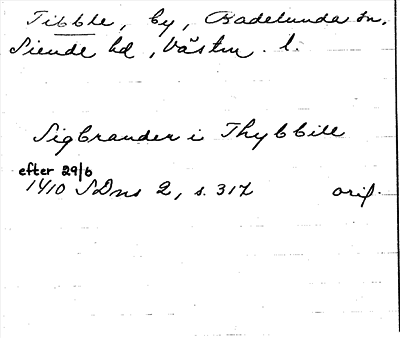 Tibble, by, Badelunda sn,
Siende hd, Västm. l.
Sigbrander i Thybbill
efter 29/6
1410 SDns 2, s. 317 orig.